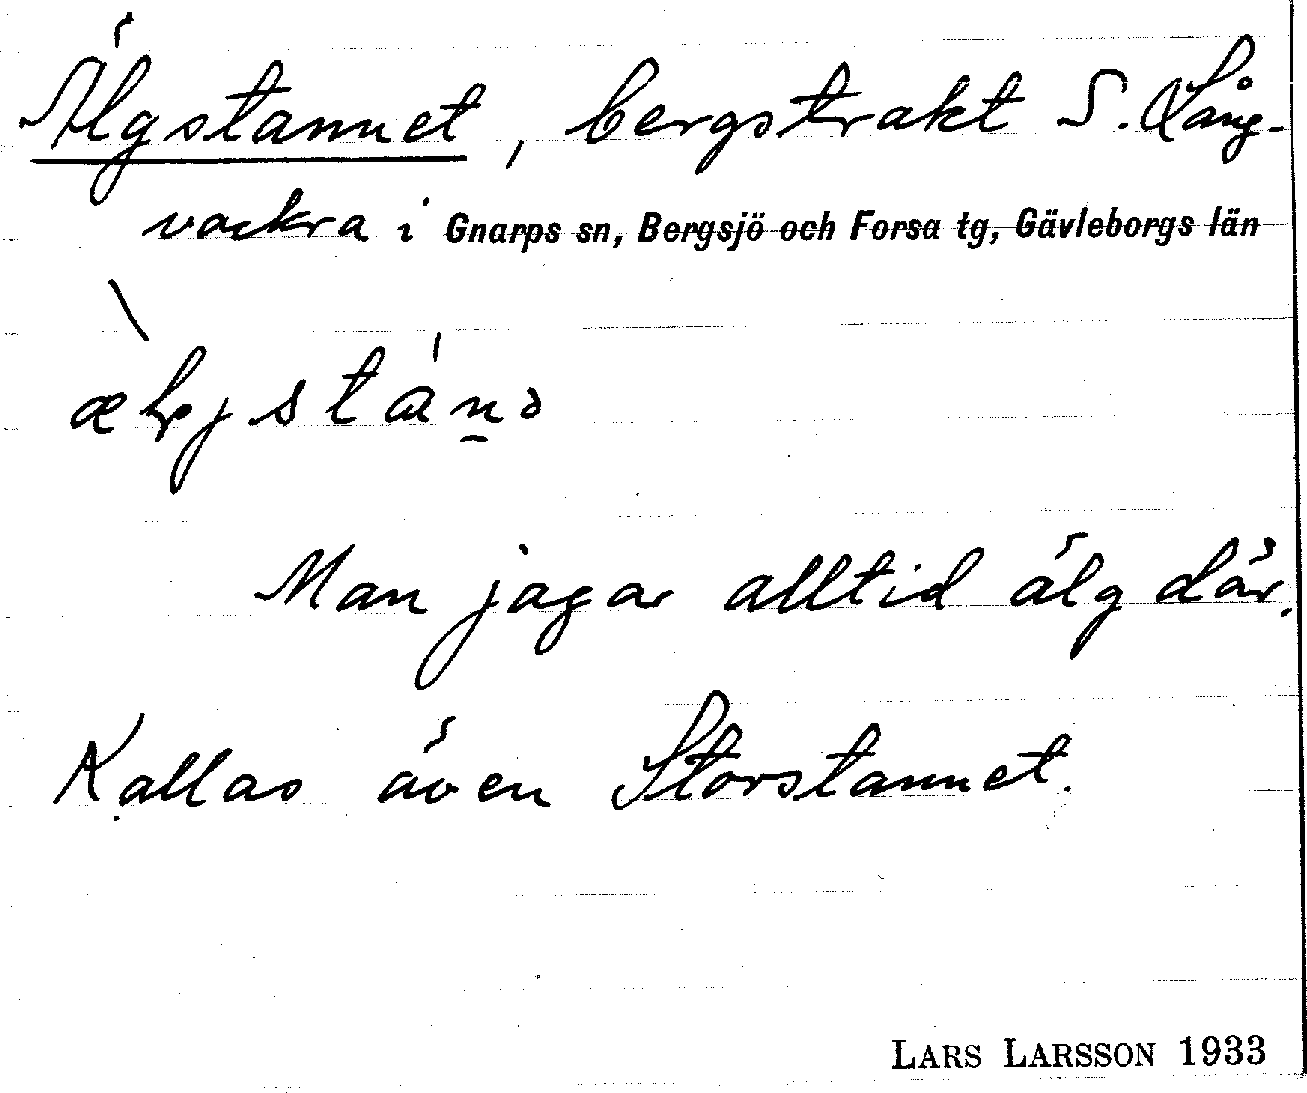 Älgstannet, bergstrakt S. Lång-
vackra i Gnarps sn, Bergsjö och Forsa tg, Gävleborgs län
Man jagar alltid älg där.
Kallas även Storstannet.
LARS LARSSON 1933